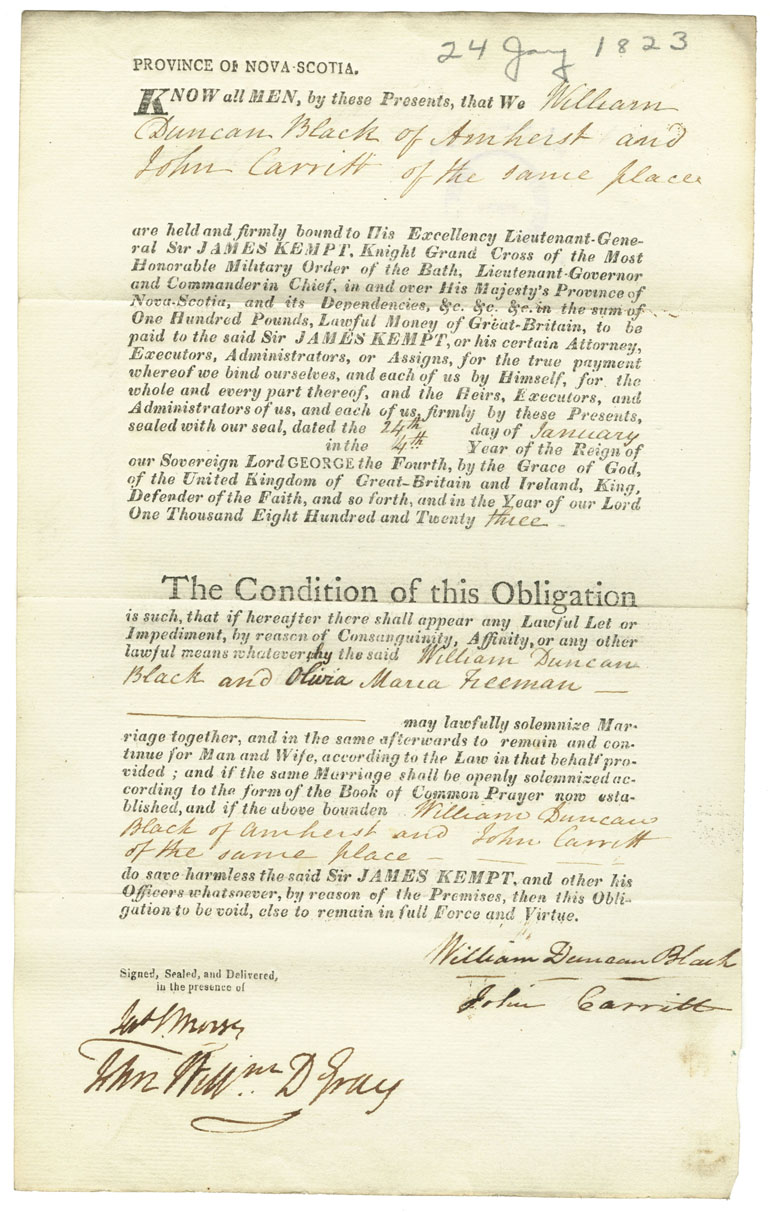 24 Jany 1823
PROVINCE OF NOVA-SCOTIA.
KNOW all MEN, by these Presents, that We William
Duncan Black of Amherst and
John Carritt of the same place
are held and firmly bound to His Excellency Lieutenant-Gene-
ral Sir JAMES KEMPT, Knight Grand Cross of the Most
Honorable Military Order of the Bath, Lieutenant-Governor
and Commander in Chief, in and over His Majesty's Province of
Nova-Scotia, and its Dependencies, &c. &c. &c. in the sum of
One Hundred Pounds, Lawful Money of Great-Britain, to be
paid to the said Sir JAMES KEMPT, or his certain Attorney,
Executors, Administrators, or Assigns, for the true payment
whereof we bind ourselves, and each of us by Himself, for the
whole and every part thereof, and the Heirs, Executors, and
Administrators of us, and each of us, firmly by these Presents,
sealed with our seal, dated the 24th day of January
in the 4th Year of the Reign of
our Sovereign Lord GEORGE the Fourth, by the Grace of God,
of the United Kingdom of Great-Britain and Ireland, King,
Defender of the Faith, and so forth, and in the Year of our Lord
One Thousand Eight Hundred and Twenty three
The Condition of this Obligation
is such, that if hereafter there shall appear any Lawful Let or
Impediment, by reason of Consanguinity, Affinity, or any other
lawful means whatever, by the said William Duncan
Black and Olivia Maria Freeman
may lawfully solemnize Mar-
riage together, and in the same afterwards to remain and con-
tinue for Man and Wife, according to the Law in that behalf pro-
vided ; and if the same Marriage shall be openly solemnized ac-
cording to the form of the Book of Common Prayer now esta-
blished, and if the above bounden William Duncan
Black of Amherst and John Carritt
of the same place
do save harmless the said Sir JAMES KEMPT, and other his
Officers whatsoever, by reason of the Premises, then this Obli-
gation to be void, else to remain in full Force and Virtue.
William Duncan Black
John Carritt
Signed, Sealed, and Delivered,
in the presence of
Morse
John Willm. D Gray